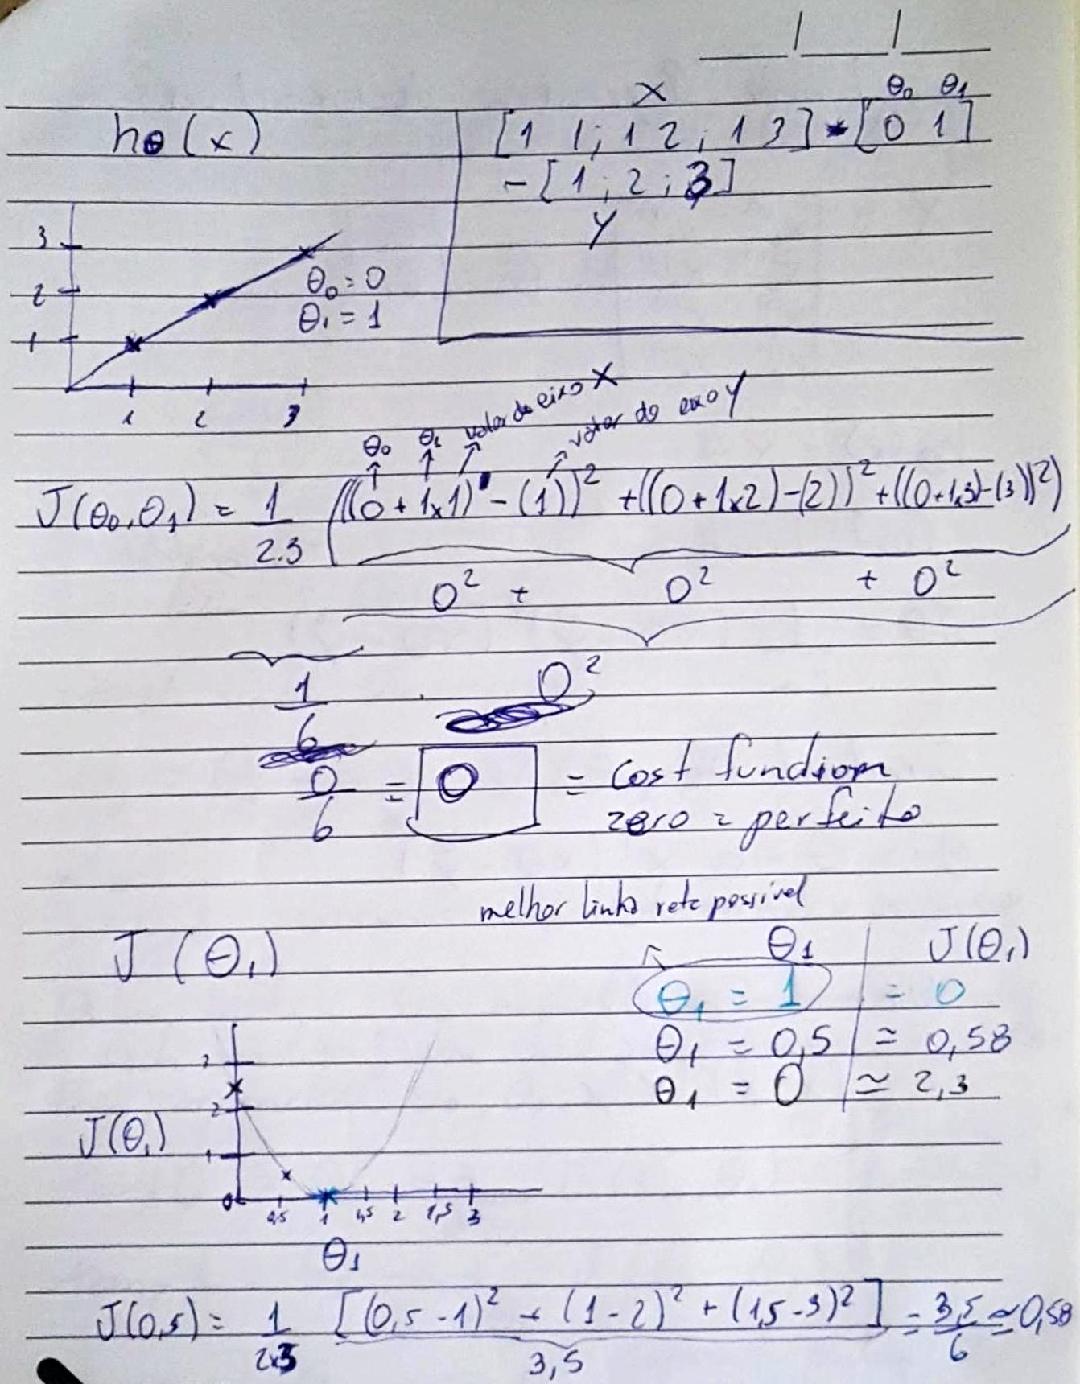 X θ₀ θ₁
hθ(x) [1 1; 1 2; 1 3] * [0 1]
- [1; 2; 3]
Y
3
2
1
θ₀ = 0
θ₁ = 1
1 2 3
θ₀ θ₁ valor do eixo X valor do eixo Y
J(θ₀,θ₁) = 1/2.3 (((0 + 1x1) - (1))² + ((0 + 1x2) - (2))² + ((0+1.3)-(3))²)
0² + 0² + 0²
1/6 . 0²
0/6 = 0 = cost function
zero = perfeito
melhor linha reta possível
J(θ₁) θ₁ J(θ₁)
θ₁ = 1 = 0
θ₁ = 0,5 ≃ 0,58
θ₁ = 0 ≃ 2,3
J(θ₁)
3
2
1
0
0,5 1 1,5 2 1,5 3
θ₁
J(0,5) = 1/2x3 [(0,5 - 1)² + (1 - 2)² + (1,5 - 3)²] = 3,5/6 ≃ 0,58
3,5